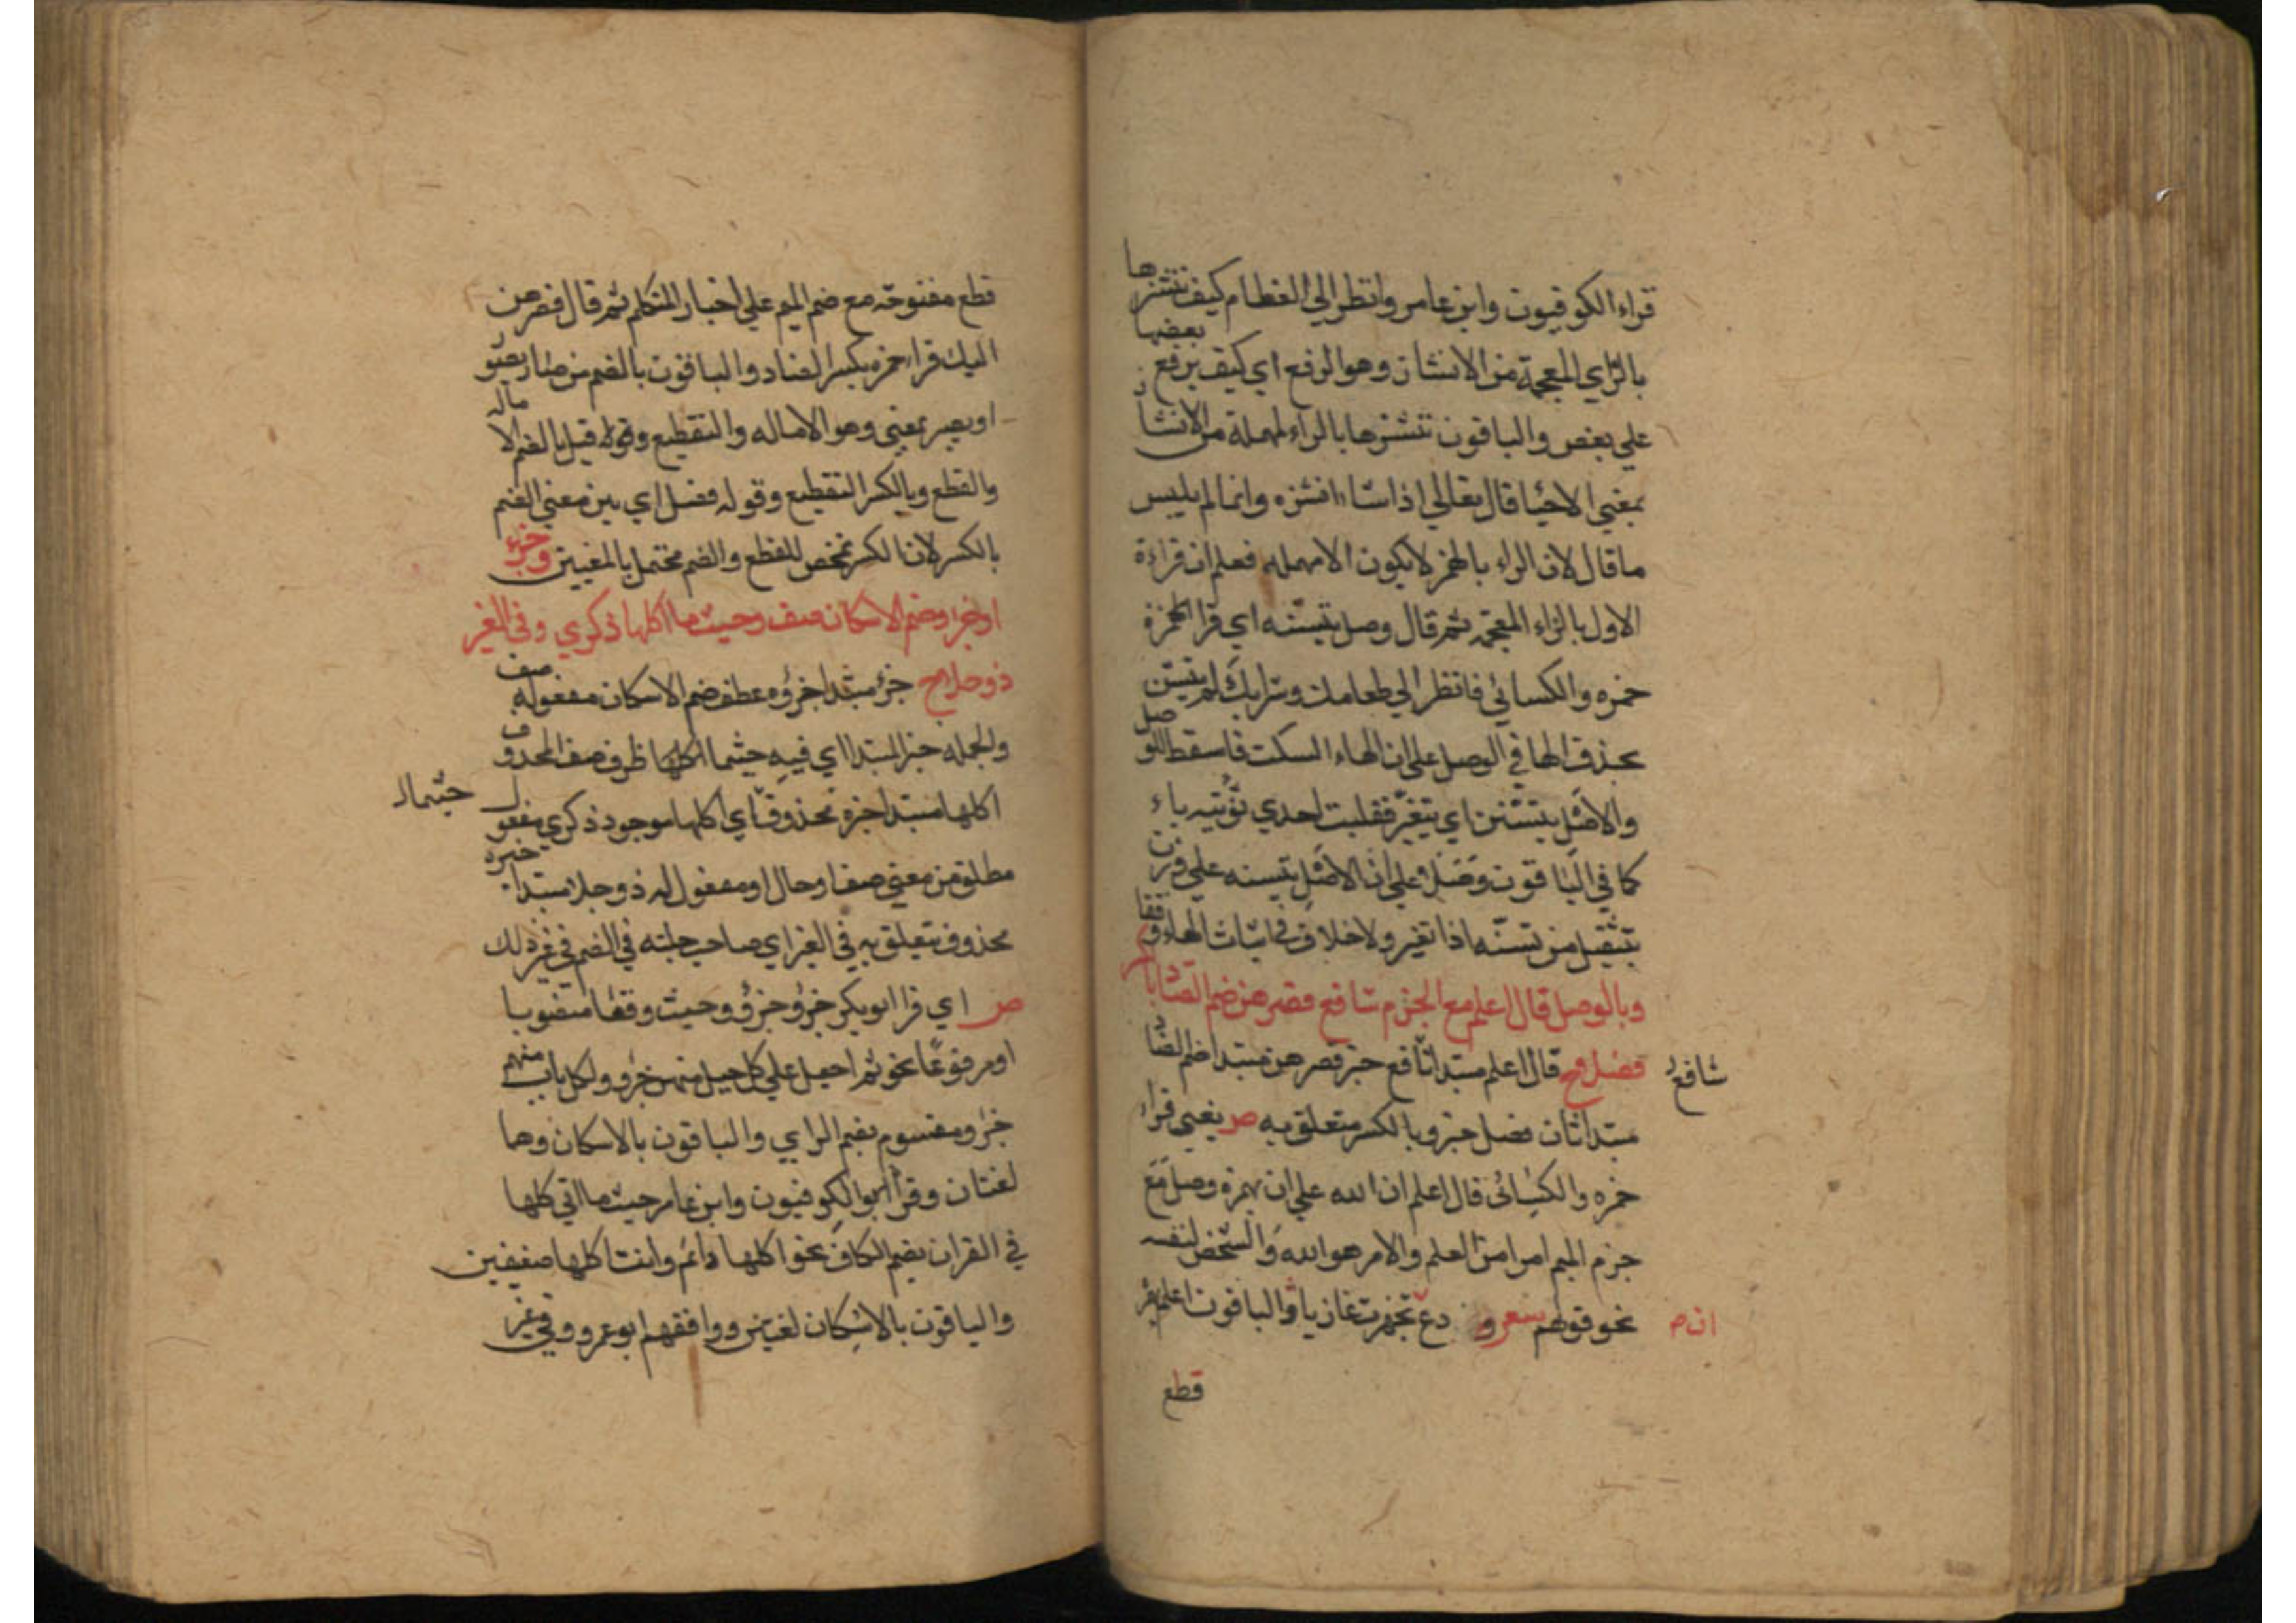 قراء الكوفيون وابن عامر وانظر الي العظام كيف ننشزها
بالزاي المعجمة من الانشاز وهو الرفع اي كيف يرفع بعضها
علي بعض والباقون ننشرها بالراء المهملة من الانشار
بمعني الاحيا قال تعالي اذا شاء انشره وانما لم يلبس
ما قال لان الراء بالهمز لا يكون الا مهمله فعلم ان قراءة
الاول بالزاء المعجمة ثم قال وصل يتسنه اي قرا
حمزه والكسائي فانظر الي طعامك وشرابك لم يتسن
بحذف الها في الوصل علي ان الهاء السكت فاسقط للوصل
والاصل يتسنن اي يتغير فقلبت احدي نونيه ياء
كما في الباقون وصلا علي ان الاصل يتسنه علي وزن
يتفعل من تسنه اذا تغير ولا خلاف في اثبات الهاء وقفا
وبالوصل قال اعلم مع الجزم شافع فصرهن ضم الصاد بالكسر
فصلا ح قال اعلم مبتدا شافع خبر فصرهن مبتدا ضم الصاد
شافع
مبتدا ثان فصل خبر و بالكسر متعلق به ص يعني قراء
حمزه والكسائي قال اعلم ان الله علي ان همزة وصل مع
جزم الميم امرا من العلم والامر هو الله والشخص لنفسه
نحو قولهم شعر و دع تجهزت غازيا والباقون اعلم
قطع
قطع مفتوحة مع ضم الميم علي اخبار المتكلم ثم قال فصرهن
اليك قراء حمزه بكسر الصاد والباقون بالضم من صار يصور
او يصير بمعني وهو الاماله والتقطيع وقيل بالضم الاماله
والقطع وبالكسر التقطيع وقوله فصل اي بين معني الضم
بالكسر لان الكسر مخصص للقطع والضم محتمل بالمعنيين وجزء
او جزؤ وضم الاسكان صف وحيث ما اكلها ذكري وفي الغير
ذو حلا ح جزؤ مبتدا جزؤه عطف ضم الاسكان مفعوله صف
والجمله خبر المبتدا اي فيه حيثما اكلها ظرف صف المحذوف
اكلها مبتدا خبره محذوف اي اكلها موجود ذكري مفعول
حيثما
مطلق من معني صف او حال او مفعول له ذو حلا مبتدا خبره
محذوف يتعلق به في الغير اي صاحب حلية في الضم في غير ذلك
ص اي قرا ابو بكر جزؤ وجزؤ وحيث وقعا منصوبا
او مرفوعا نحو ثم اجعل علي كل جبل منهن جزؤ ولكل باب منهم
جزؤ مقسوم بضم الزاي والباقون بالاسكان وهما
لغتان وقرأ الكوفيون وابن عامر حيث ما اتي كلها
في القران بضم الكاف نحو اكلها دائم واتت اكلها ضعفين
والباقون بالاسكان لغتين ووافقهم ابو عمرو في غير